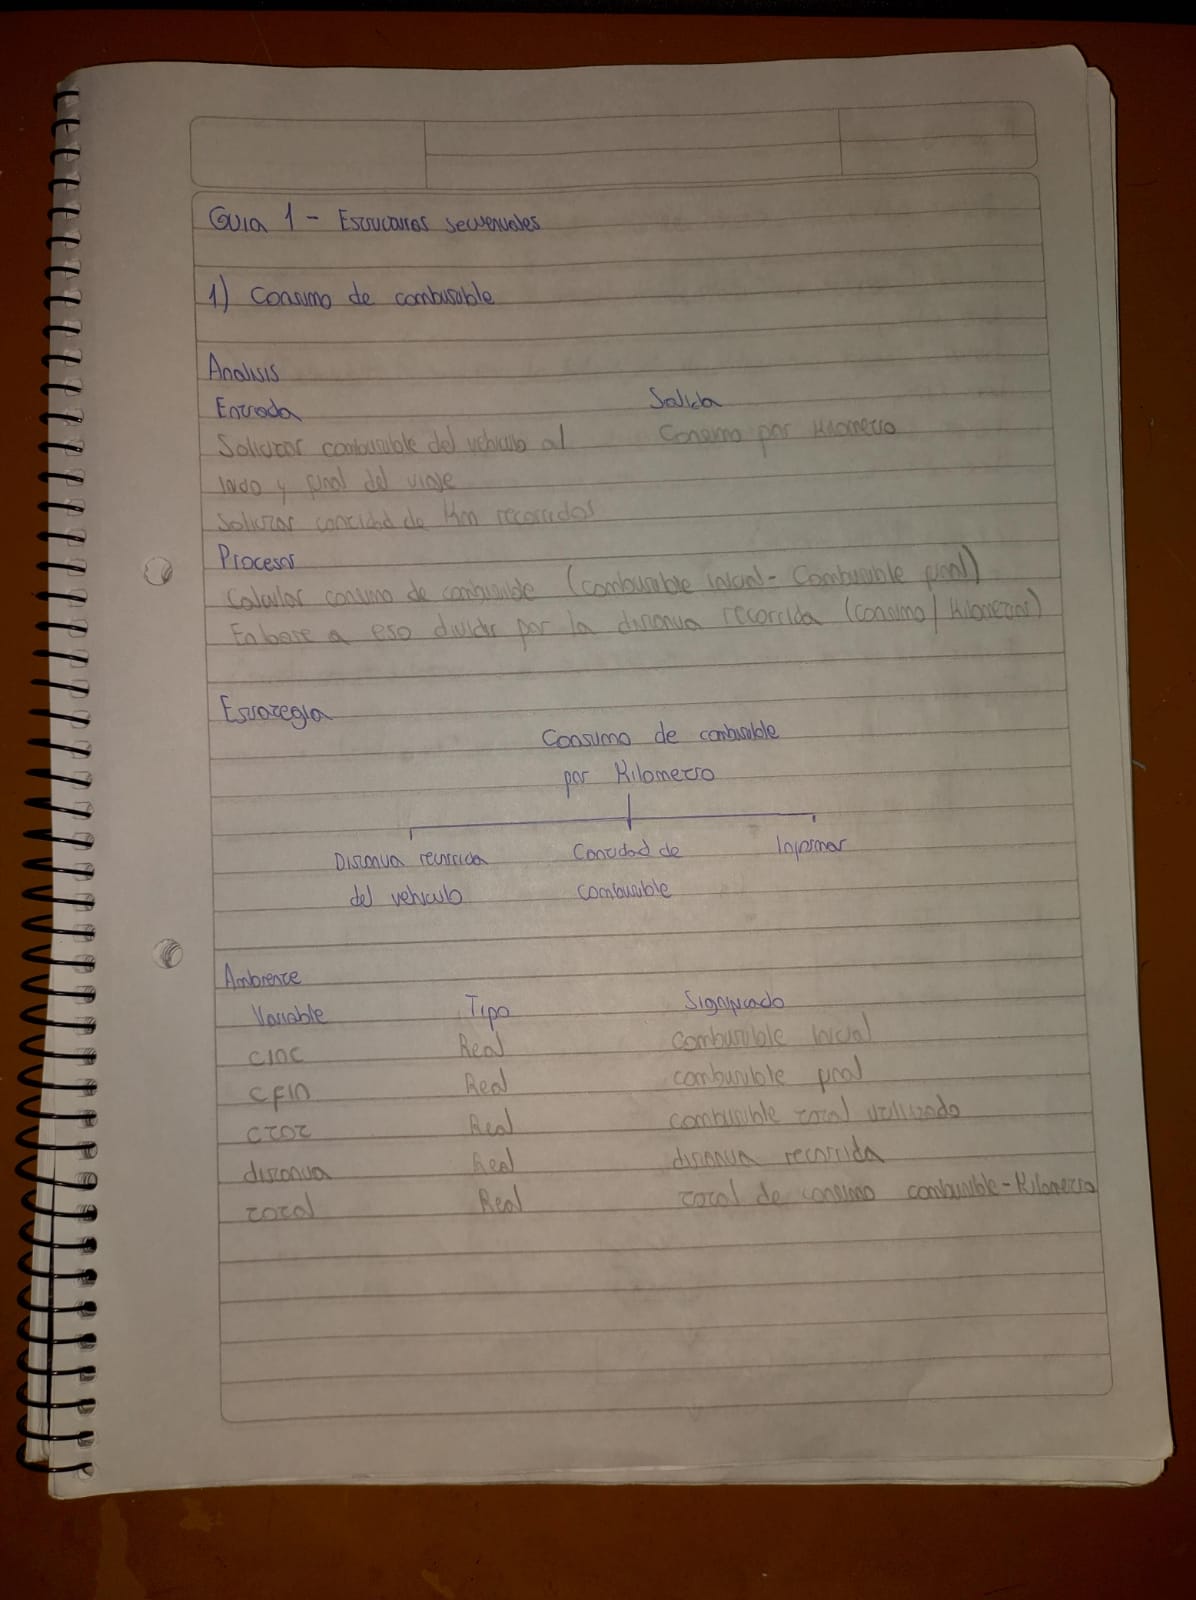 Guia 1 - Estructuras secuenciales
1) Consumo de combustible
Analisis
Entrada Salida
Solicitar combustible del vehiculo al Consumo por kilometro
inicio y final del viaje
Solicitar cantidad de km recorridos
Procesos
Calcular consumo de combustible (combustible inicial - Combustible final)
En base a eso dividir por la distancia recorrida (consumo / kilometros)
Estrategia
Consumo de combustible
por Kilometro
Distancia recorrida Cantidad de Informar
del vehiculo combustible
Ambiente
Variable Tipo Significado
cinc Real combustible inicial
cfin Real combustible final
ctot Real combustible total utilizado
distancia Real distancia recorrida
total Real total de consumo combustible - Kilometro